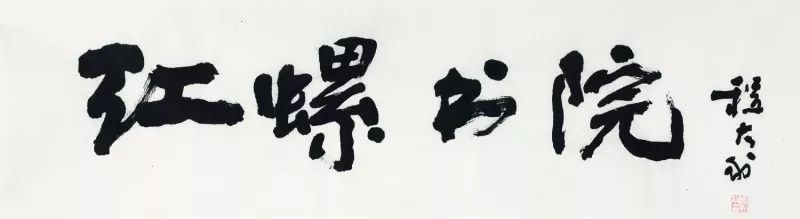 红螺书院
程大利